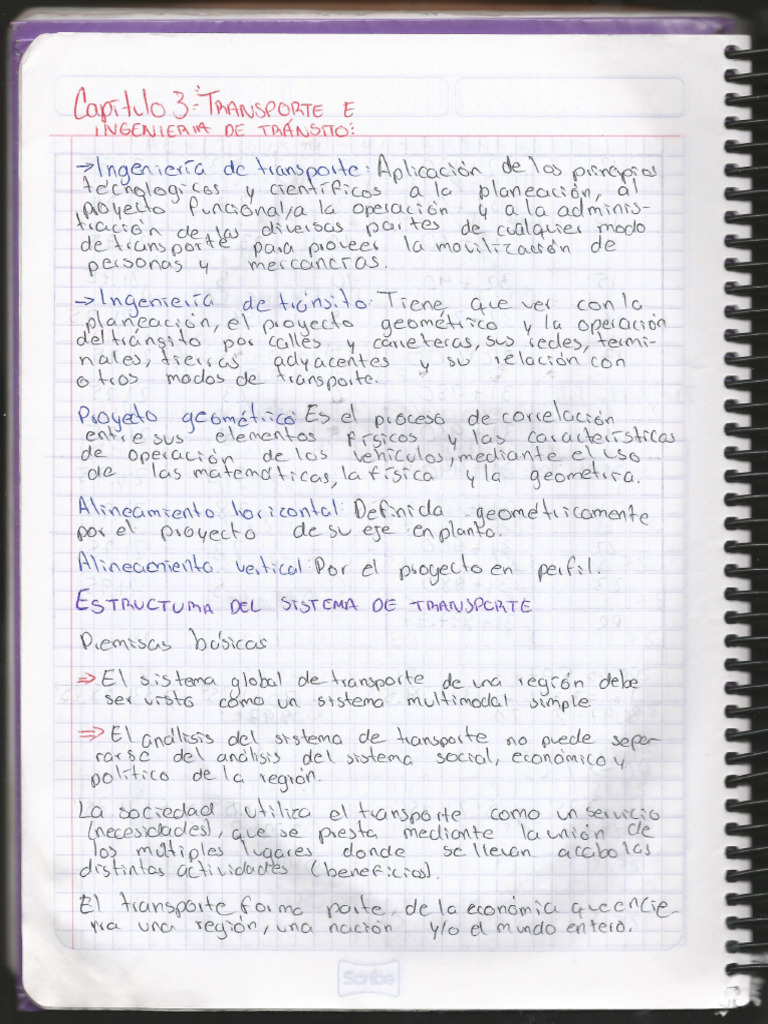 Capítulo 3: TRANSPORTE E
INGENIERIA DE TRÁNSITO:
→Ingeniería de transporte: Aplicación de los principios
tecnologicos y científicos a la planeación, al
proyecto funcional, a la operación y a la adminis-
tración de las diversas partes de cualquier modo
de transporte para proveer la movilización de
personas y mercancías.
→Ingeniería de tránsito: Tiene que ver con la
planeación, el proyecto geométrico y la operación
del tránsito por calles y carreteras, sus redes, termi-
nales, tierras adyacentes y su relación con
otros modos de transporte.
Proyecto geométrico: Es el proceso de correlación
entre sus elementos físicos y las características
de operación de los vehículos, mediante el uso
de las matemáticas, la física y la geometira.
Alineamiento horizontal: Definida geométricamente
por el proyecto de su eje en planta.
Alineamiento vertical: Por el proyecto en perfil.
ESTRUCTURA DEL SISTEMA DE TRANSPORTE
Premisas básicas
⇒ El sistema global de transporte de una región debe
ser visto como un sistema multimodal simple
⇒ El análisis del sistema de transporte no puede sepa-
rarse del análisis del sistema social, económico y
político de la región.
La sociedad utiliza el transporte como un servicio
(necesidades), que se presta mediante la unión de
los múltiples lugares donde se llevan acabo las
distintas actividades (beneficios).
El transporte forma parte de la económia que encie-
rra una región, una nación y/o el mundo entero.
Scribe